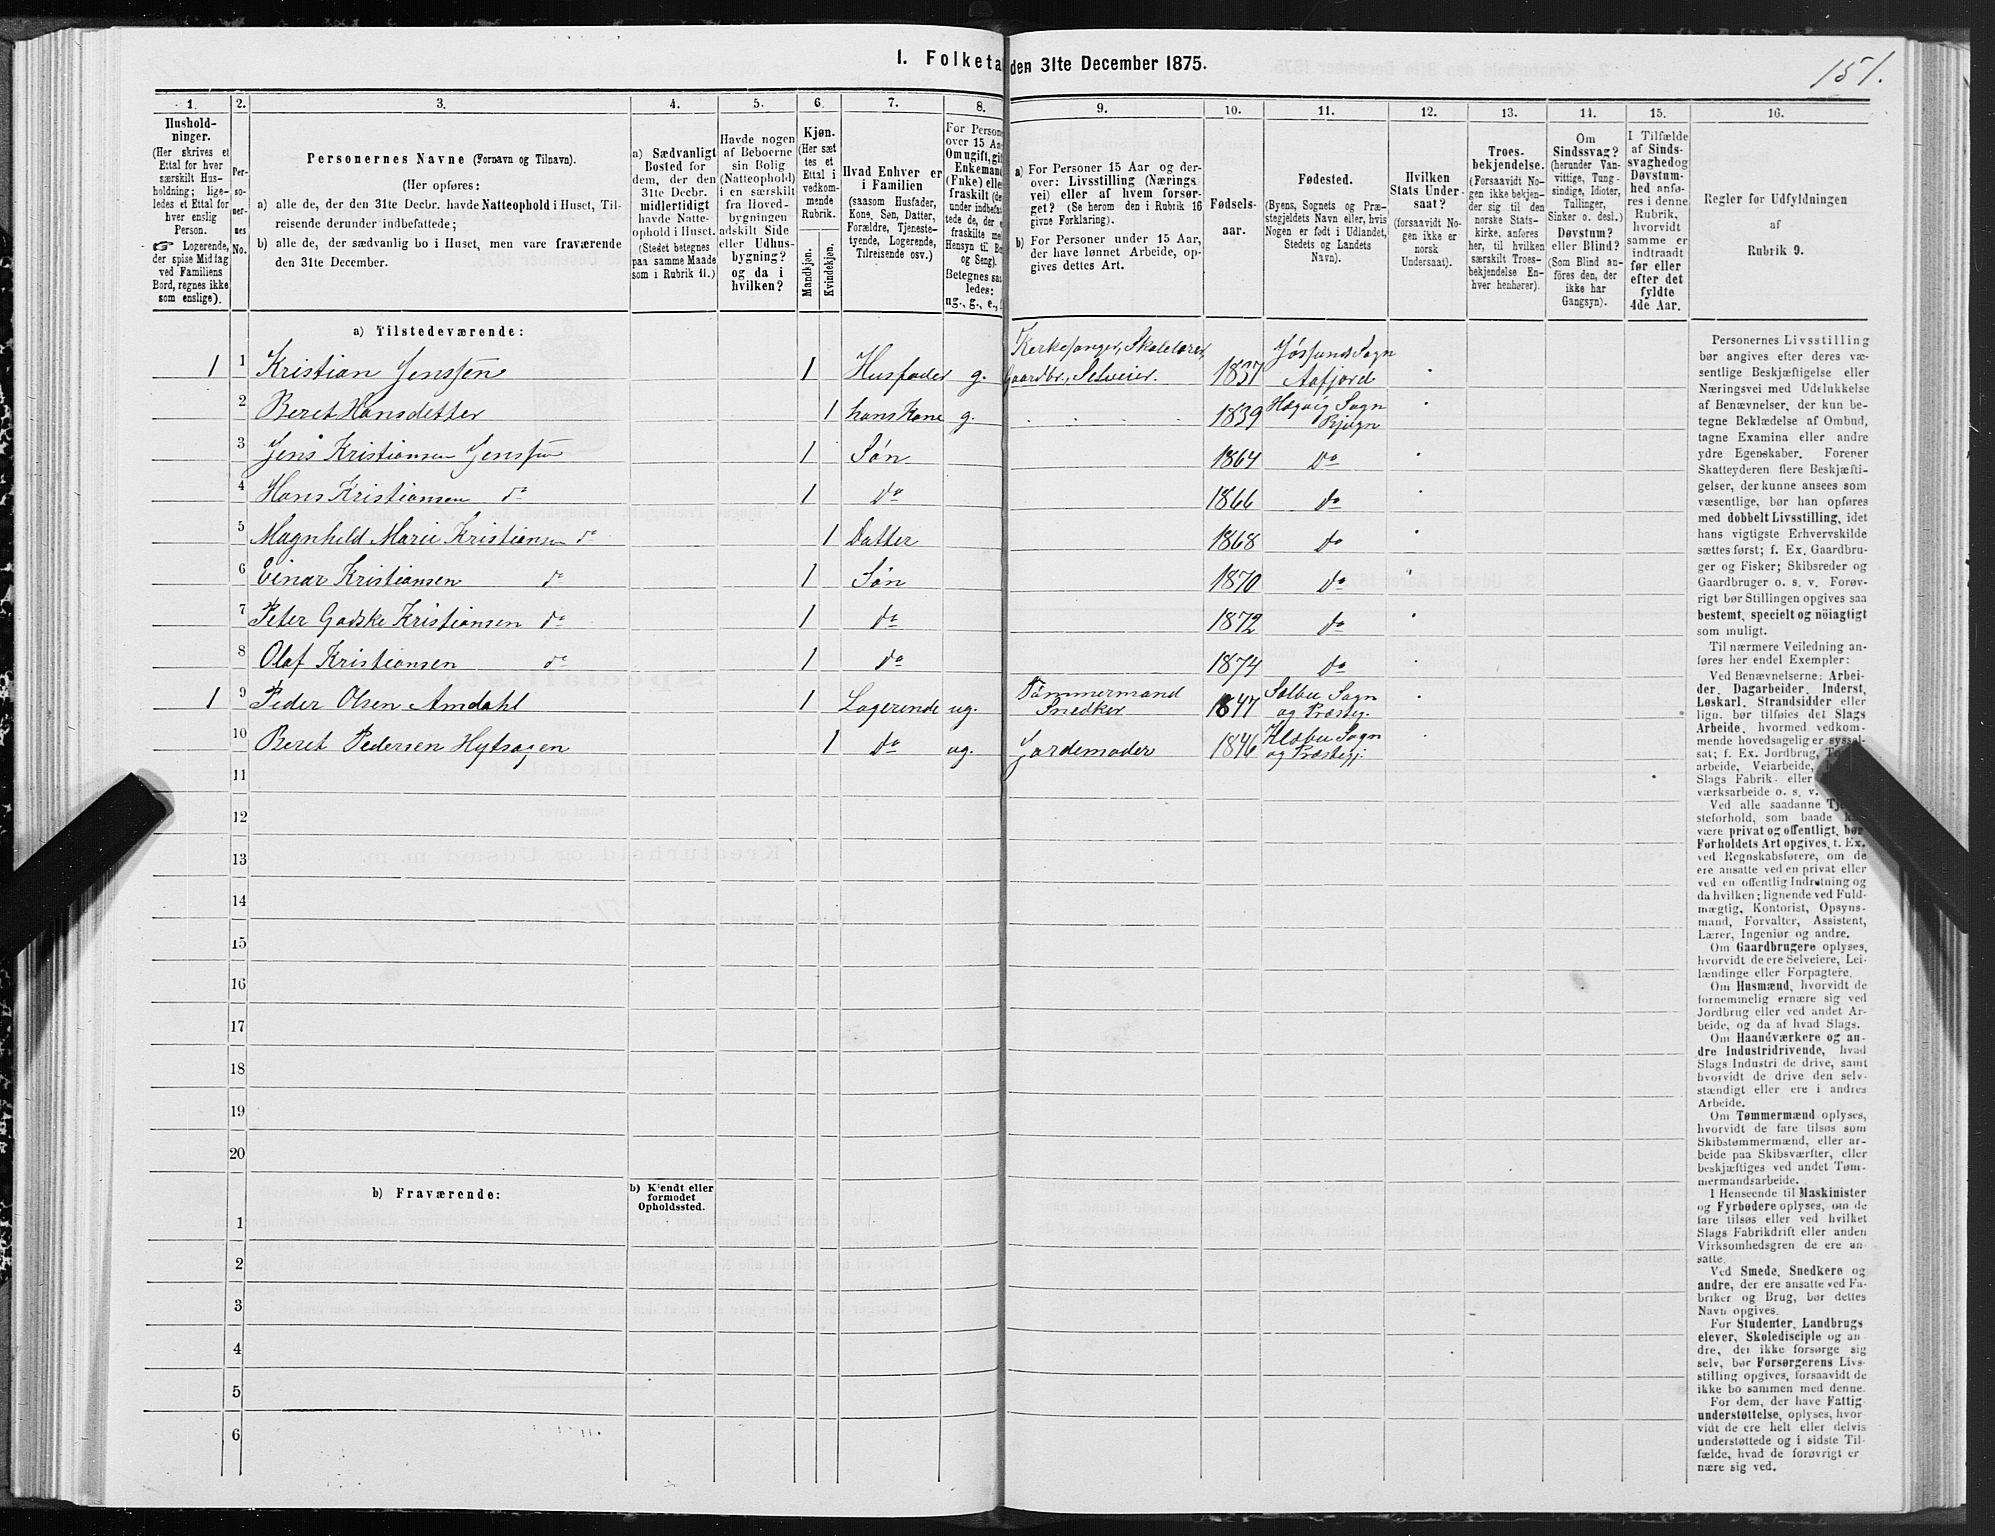 151.
1. Folketa den 31te December 1875.
1. 2. 3. 4. 5. 6. 7. 8. 9. 10. 11. 12. 13. 14. 15. 16.
Hushold-
ninger.
(Her skrives et
Ettal for hver
særskilt Hus-
holdning; lige-
ledes et Ettal for
hver enslig
Person.
☞ Logerende,
der spise Midlag
ved Familiens
Bord, regnes ikke
som enslige).
Per-
so-
ner-
nes
No.
Personernes Navne (Fornavn og Tilnavn).
(Her opføres:
a) alle de, der den 31te Decbr. havde Natteophold i Huset, Til-
reisende derunder indbefattede;
b) alle de, der sædvanlig bo i Huset, men vare fraværende
den 31te December.
a) Sædvanligt
Bosted for
dem, der den
31te Decbr.
midlertidigt
havde Natte-
ophold i Huset.
(Stedet betegnes
paa samme Maade
som i Rubrik 11.)
Havde nogen
af Beboerne
sin Bolig
(Natteophold)
i en særskilt
fra Hoved-
bygningen
adskilt Side
eller Udhus-
bygning?
og da i
hvilken?
Kjøn.
(Her sæt
tes et
Ettal i
vedkom-
mende
Rubrik.
Mandkjøn.
Kvindekjøn.
Hvad Enhver er
i Familien
(saasom Husfader,
Kone, Søn, Datter,
Forældre, Tjeneste-
tyende, Logerende,
Tilreisende osv.)
For Persone
over 15 Aa
Om ugift, gif
Enkemand
(Enke) elle
fraskilt (her
under indbefat
tede de, der e
fraskilte med
Hensyn til Bo
og Seng).
Betegnes saa
ledes:
ug., g., e.,
a) For Personer 15 Aar og der-
over: Livsstilling (Nærings
vei) eller af hvem forsør-
get? (Se herom den i Rubrik 16
givne Forklaring).
b) For Personer under 15 Aar,
der have lønnet Arbeide, op-
gives dettes Art.
Fødsels-
aar.
Fødested.
(Byens, Sognets og Præ-
stegjeldets Navn eller, hvis
Nogen er født i Udlandet,
Stedets og Landets
Navn).
Hvilken
Stats Under-
saat?
(forsaavidt No-
gen ikke er
norsk
Undersaat).
Troes-
bekjendelse.
(Forsaavidt No-
gen ikke bekjen-
der sig til den
norske Stats-
kirke, anføres
her, til hvilken
særskilt Troes-
bekjendelse En-
hver henhører).
Om
Sindssvag?
(herunder Van-
vittige, Tung-
sindige, Idioter,
Tullinger,
Sinker o. desl.)
Døvstum?
eller Blind?
(Som Blind an-
føres den, der
ikke har
Gangsyn).
I Tilfælde
af Sinds-
svaghed og
Døvstum-
hed anfø-
res i denne
Rubrik,
hvorvidt
samme er
indtraadt
før eller
efter det
fyldte
4de Aar.
Regler for Udfyldningen
af
Rubrik 9.
a) Tilstedeværende:
1 1 Kristian Jenssen 1 Husfader g. Kerkesanger, Skolelærer, Gaardbr., Selveier. 1837 Jøssund Sogn Aafjord
2 Beret Hansdatter 1 hans Kone g. 1839 Hegvig Sogn Bjugn
3 Jens Kristiansen Jenssen 1 Søn 1864 Do
4 Hans Kristiansen do 1 do 1866 do
5 Magnhild Marie Kristiansen do 1 Datter 1868 do
6 Einar Kristiansen do 1 Søn 1870 do
7 Peter Godske Kristiansen do 1 do 1872 do
8 Olaf Kristiansen do 1 do 1874 do
1 9 Peder Olsen Amdahl 1 Logerende ug. Tømmermand Snedker 1847 Selbu Sogn og Præsteg.
10 Beret Pedersen 1 do ug. Jordemoder 1846 Klæbu Sogn og Præstegj.
11
12
13
14
15
16
17
18
19
20
b) Fraværende:
b) Kjendt eller
formodet
Opholdssted.
1
2
3
4
5
6
Personernes Livsstilling
bør angives efter deres væ-
sentlige Beskjæftigelse eller
Næringsvei med Udelukkelse
af Benævnelser, der kun be-
tegne Beklædelse af Ombud,
tagne Examina eller andre
ydre Egenskaber. Forener
Skatteyderen flere Beskjæfti-
gelser, der kunne ansees som
væsentlige, bør han opføres
med dobbelt Livsstilling, idet
hans vigtigste Erhvervskilde
sættes først; f. Ex. Gaardbru-
ger og Fisker; Skibsreder og
Gaardbruger o. s. v. Forøv-
rigt bør Stillingen opgives saa
bestemt, specielt og nöiagtigt
som muligt.
Til nærmere Veiledning an-
føres her endel Exempler:
Ved Benævnelserne: Arbei-
der, Dagarbeider, Inderst,
Løskarl, Strandsidder eller
lign. bør tilføies det Slags
Arbeide, hvormed vedkom-
mende hovedsagelig er syssel-
sat; f. Ex. Jordbrug,
arbeide, Veiarbeide,
Slags Fabrik- eller
værksarbeide o. s. v.
Ved alle saadanne
steforhold, som baade
være privat og offentligt, bør
Forholdets Art opgives, t. Ex.
ved Regnskabsførere, om de
ere ansatte ved en privat eller
ved en offentlig Indretning og
da hvilken; lignende ved Fuld-
mægtig, Kontorist, Opsyns-
mand, Forvalter, Assistent,
Lærer, Ingeniør og andre.
Om Gaardbrugere oplyses,
hvorvidt de ere Selveiere, Lei-
lændinge eller Forpagtere.
Om Husmænd, hvorvidt de
fornemmelig ernære sig ved
Jordbrug eller ved andet Ar-
beide, og da af hvad Slags.
Om Haandværkere og an-
dre Industridrivende, hvad
Slags Industri de drive, samt
hvorvidt de drive den selv-
stændigt eller ere i andres
Arbeide.
Om Tømmermænd oplyses,
hvorvidt de fare tilsøs som
Skibstømmermænd, eller ar-
beide paa Skibsværfter, eller
beskjæftiges ved andet Tøm-
mermandsarbeide.
I Henseende til Maskinister
og Fyrbødere oplyses, om de
fare tilsøs eller ved hvilket
Slags Fabrikdrift eller anden
Virksomhedsgren de ere an-
satte.
Ved Smede, Snedkere og
andre, der ere ansatte ved Fa-
briker og Brug, bør dettes
Navn opgives.
For Studenter, Landbrugs
elever, Skoledisciple og an-
dre, der ikke forsørge sig
selv, bør Forsørgerens Livs-
stilling opgives, forsaavidt de
ikke bo sammen med denne.
For dem, der have Fattig-
understøttelse, oplyses, hvor-
vidt de ere helt eller delvis
understøttede og i sidste Til-
fælde, hvad de forøvrigt er
nære sig ved.